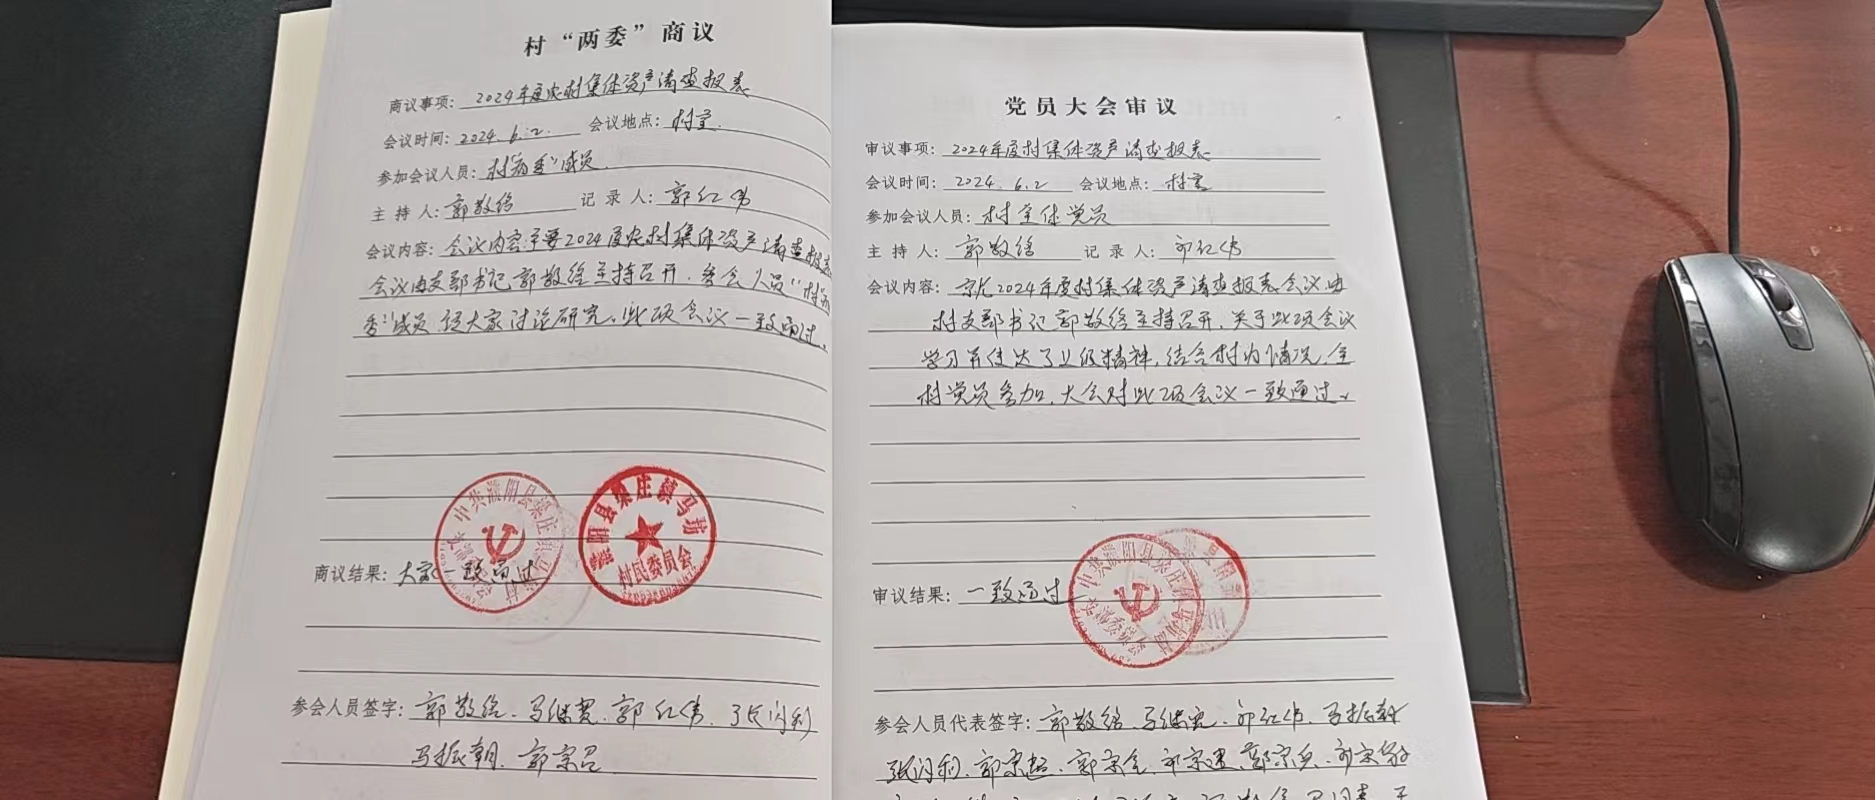 村“两委”商议
商议事项：2024年度农村集体资产清查报表
会议时间：2024.6.2 会议地点：村室
参加会议人员：村“两委”成员
主持人：郭敬绘 记录人：郭红伟
会议内容：会议内容主要2024度农村集体资产清查报表
会议由支部书记郭敬绘主持召开，参会人员“村两
委”成员，经大家讨论研究，此项会议一致通过。
中共濮阳县梁庄镇马坊村支部委员会
濮阳县梁庄镇马坊
村民委员会
商议结果：大家一致通过
参会人员签字：郭敬绘、马继、郭红伟、张闪利
马振朝、郭宗召
党员大会审议
审议事项：2024年度村集体资产清查报表
会议时间：2024.6.2 会议地点：村室
参加会议人员：村全体党员
主持人：郭敬绘 记录人：郭红伟
会议内容：2024年度村集体资产清查报表会议由
村支部书记郭敬绘主持召开，关于此项会议
学习并传达了上级精神，结合村内情况，全
村党员参加，大会对此项会议一致通过。
审议结果：一致通过
中共濮阳县梁庄镇马坊村支部委员会
参会人员代表签字：郭敬绘、马继、郭红伟、马振朝
张闪利、郭宗超、郭宗全、郭宗建、郭宗